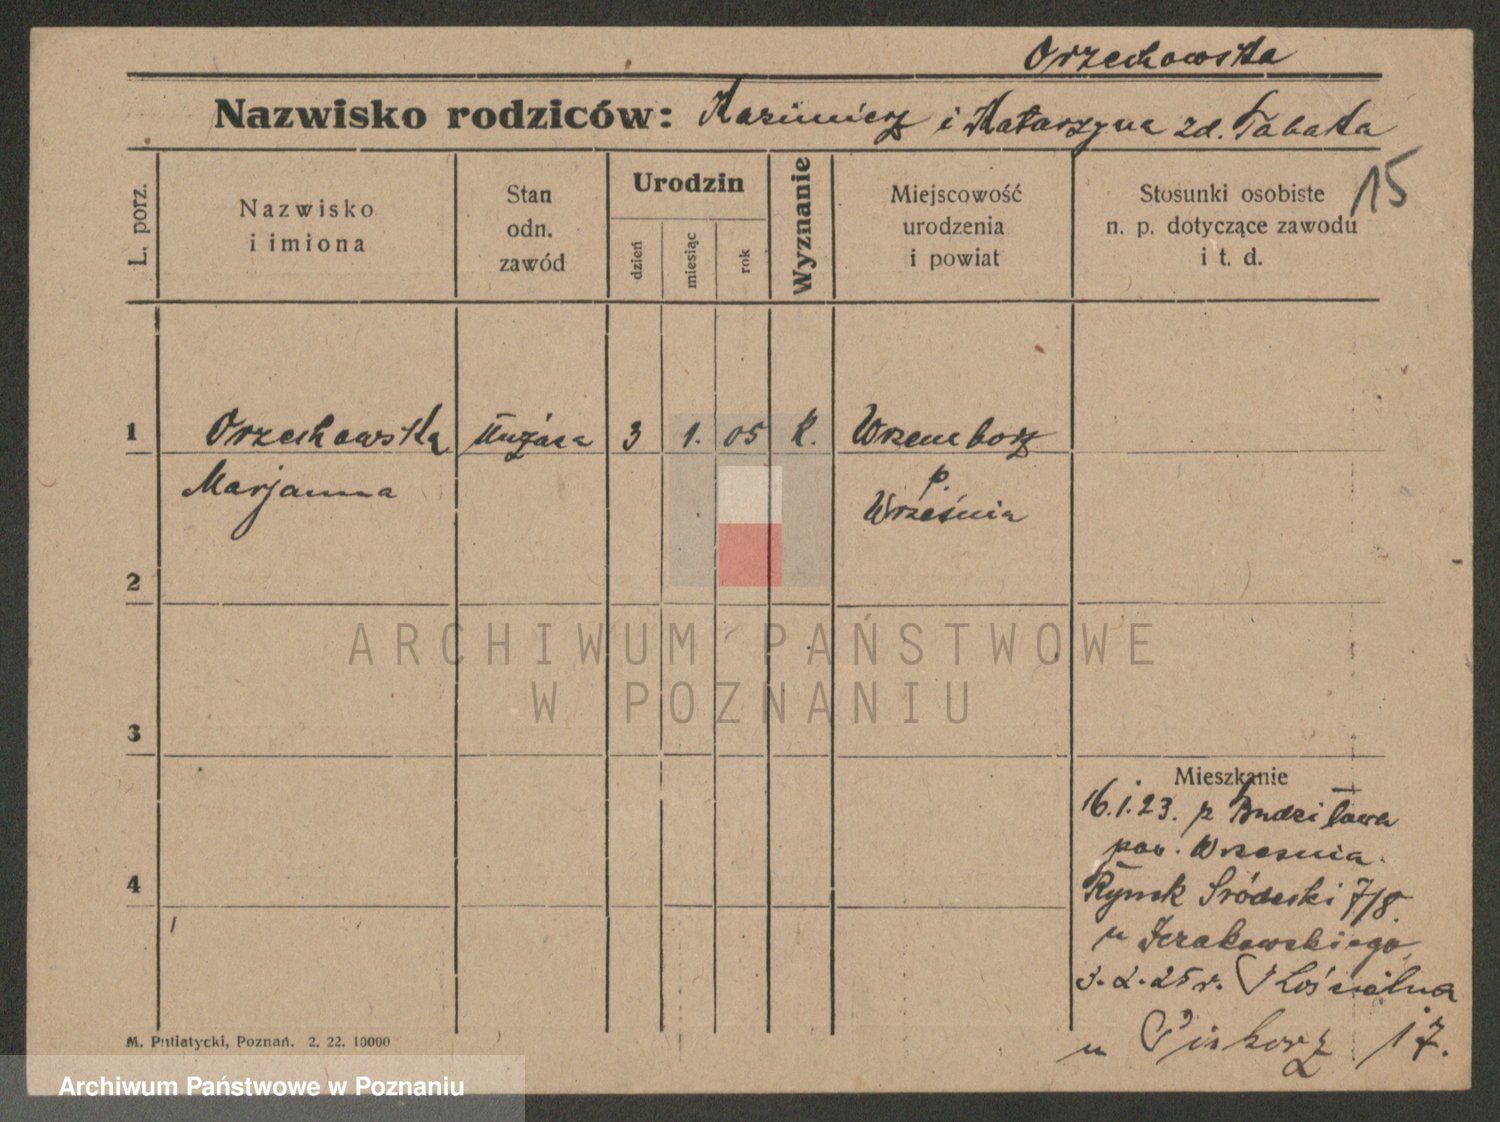 Orzechowska
Nazwisko rodziców: Kazimierz i Katarzyna zd. Tabaka
15
L. porz.
Nazwisko
i imiona
Stan
odn.
zawód
Urodzin
dzień
miesiąc
rok
Wyznanie
Miejscowość
urodzenia
i powiat
Stosunki osobiste
n. p. dotyczące zawodu
i t. d.
1 Orzechowska służąca 3 1. 05 k. Wrzemborz
Marjanna p.
Września
2
3
4
Mieszkanie
16.1.23. z Budziława
pow. Wrzesnia.
Rynek Sródecki 7/8.
u
3.2.25r. Kościelna
u Piskorz 17.
M. Putiatycki, Poznań. 2. 22. 10000
ARCHIWUM PAŃSTWOWE
W POZNANIU
Archiwum Państwowe w Poznaniu